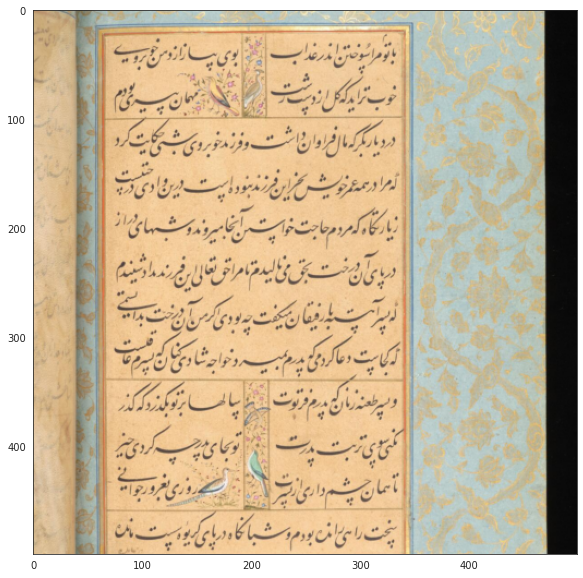 0
با تو مرا سوختن اندر عذاب بوی پیاز از دهن خوبروی
خوب تر آید که گل از دست زشت مهمان پیری بودم
100
در دیار بکر که مال فراوان داشت و فرزند خوبروی شبی حکایت کرد
که مرا در همه عمر خویش بجز این فرزند نبوده است درین وادی درختیست
200
زیارتگاه که مردم حاجت خواستن آنجا میروند و شبهای دراز
در پای آن درخت بحق می نالیدم تا مرا حق تعالی این فرزند داد شنیدم
که پسر آهسته با رفیقان میگفت چه بودی اگر من آن درخت بدانستمی
300
که کجاست دعا کردمی که پدرم بمیرد و خواجه شادی کنان که پسرم عاقلست
و پسر طعنه زنان که پدرم فرتوت سالها بر تو بگذرد که گذر
400
نکنی سوی تربت پدرت تو بجای پدر چه کردی خیر
تا همان چشم داری از پسرت روزی بغرور جوانی
سخت راهی رانده بودم و شبانگاه در پای کریوه سست مانده
0 100 200 300 400